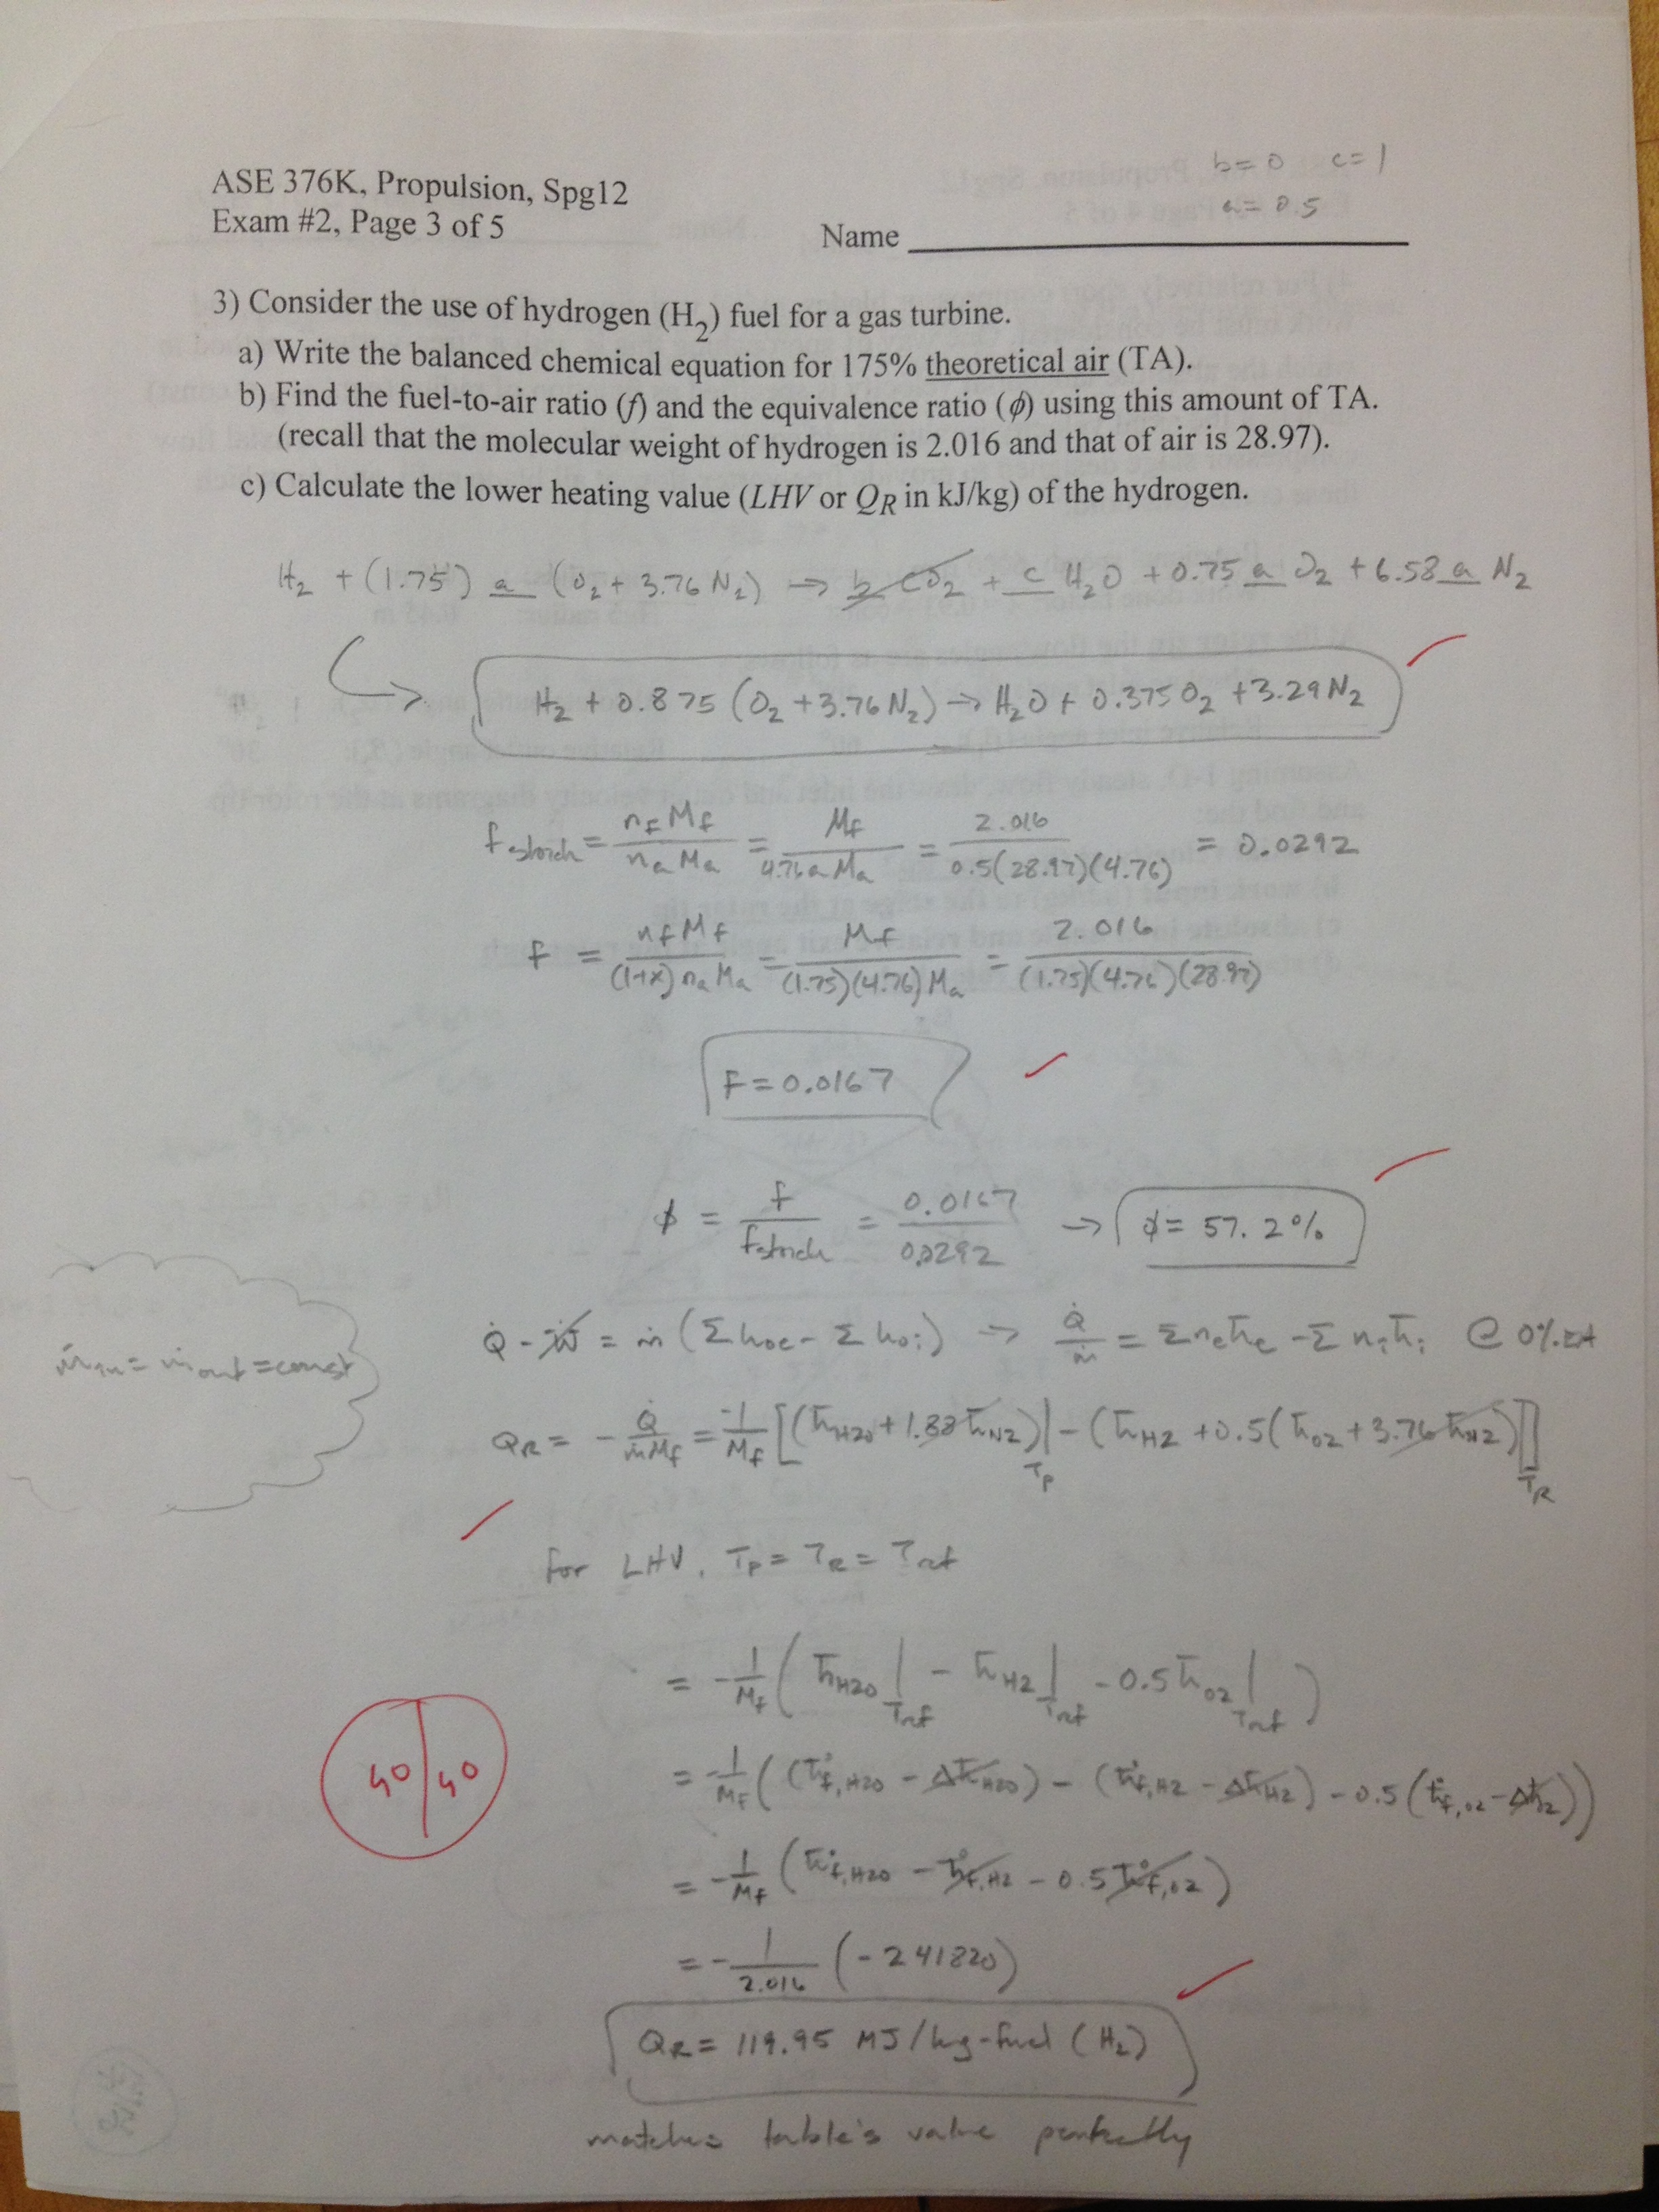 b=0 c=1
ASE 376K, Propulsion, Spg12
a=0.5
Exam #2, Page 3 of 5
Name
3) Consider the use of hydrogen (H₂) fuel for a gas turbine.
a) Write the balanced chemical equation for 175% theoretical air (TA).
b) Find the fuel-to-air ratio (f) and the equivalence ratio (ϕ) using this amount of TA.
(recall that the molecular weight of hydrogen is 2.016 and that of air is 28.97).
c) Calculate the lower heating value (LHV or Q_R in kJ/kg) of the hydrogen.
H₂ + (1.75) a (O₂ + 3.76 N₂) → b CO₂ + c H₂O + 0.75 a O₂ + 6.58 a N₂
↪ H₂ + 0.875 (O₂ + 3.76 N₂) → H₂O + 0.375 O₂ + 3.29 N₂
f_stoich = n_f M_f / n_a M_a = M_f / 4.76 a M_a = 2.016 / 0.5(28.97)(4.76) = 0.0292
f = n_f M_f / (1+x) n_a M_a = M_f / (1.75)(4.76) M_a = 2.016 / (1.75)(4.76)(28.97)
F = 0.0167
ϕ = f / f_stoich = 0.0167 / 0.0292 → ϕ = 57.2%
Q̇ - Ẇ = ṁ (Σ h_oe - Σ h_oi) → Q̇/ṁ = Σ n_e h̄_e - Σ n_i h̄_i @ 0% EA
ṁ_in = ṁ_out = const
Q_R = - Q̇ / ṁ M_f = -1/M_f [(h̄_H2O + 1.88 h̄_N2)|_Tp - (h̄_H2 + 0.5(h̄_O2 + 3.76 h̄_N2)]_TR
for LHV, T_P = T_R = T_ref
= -1/M_f ( h̄_H2O|_Tref - h̄_H2|_Tref - 0.5 h̄_O2|_Tref )
= -1/M_f ( (h̄°_f,H2O - Δh̄_H2O) - (h̄°_f,H2 - Δh̄_H2) - 0.5 (h̄°_f,O2 - Δh̄_2))
40/40
= -1/M_f (h̄°_f,H2O - h̄°_f,H2 - 0.5 h̄°_f,O2)
= -1/2.016 (-241820)
Q_R = 119.95 MJ/kg-fuel (H₂)
matches table's value perfectly